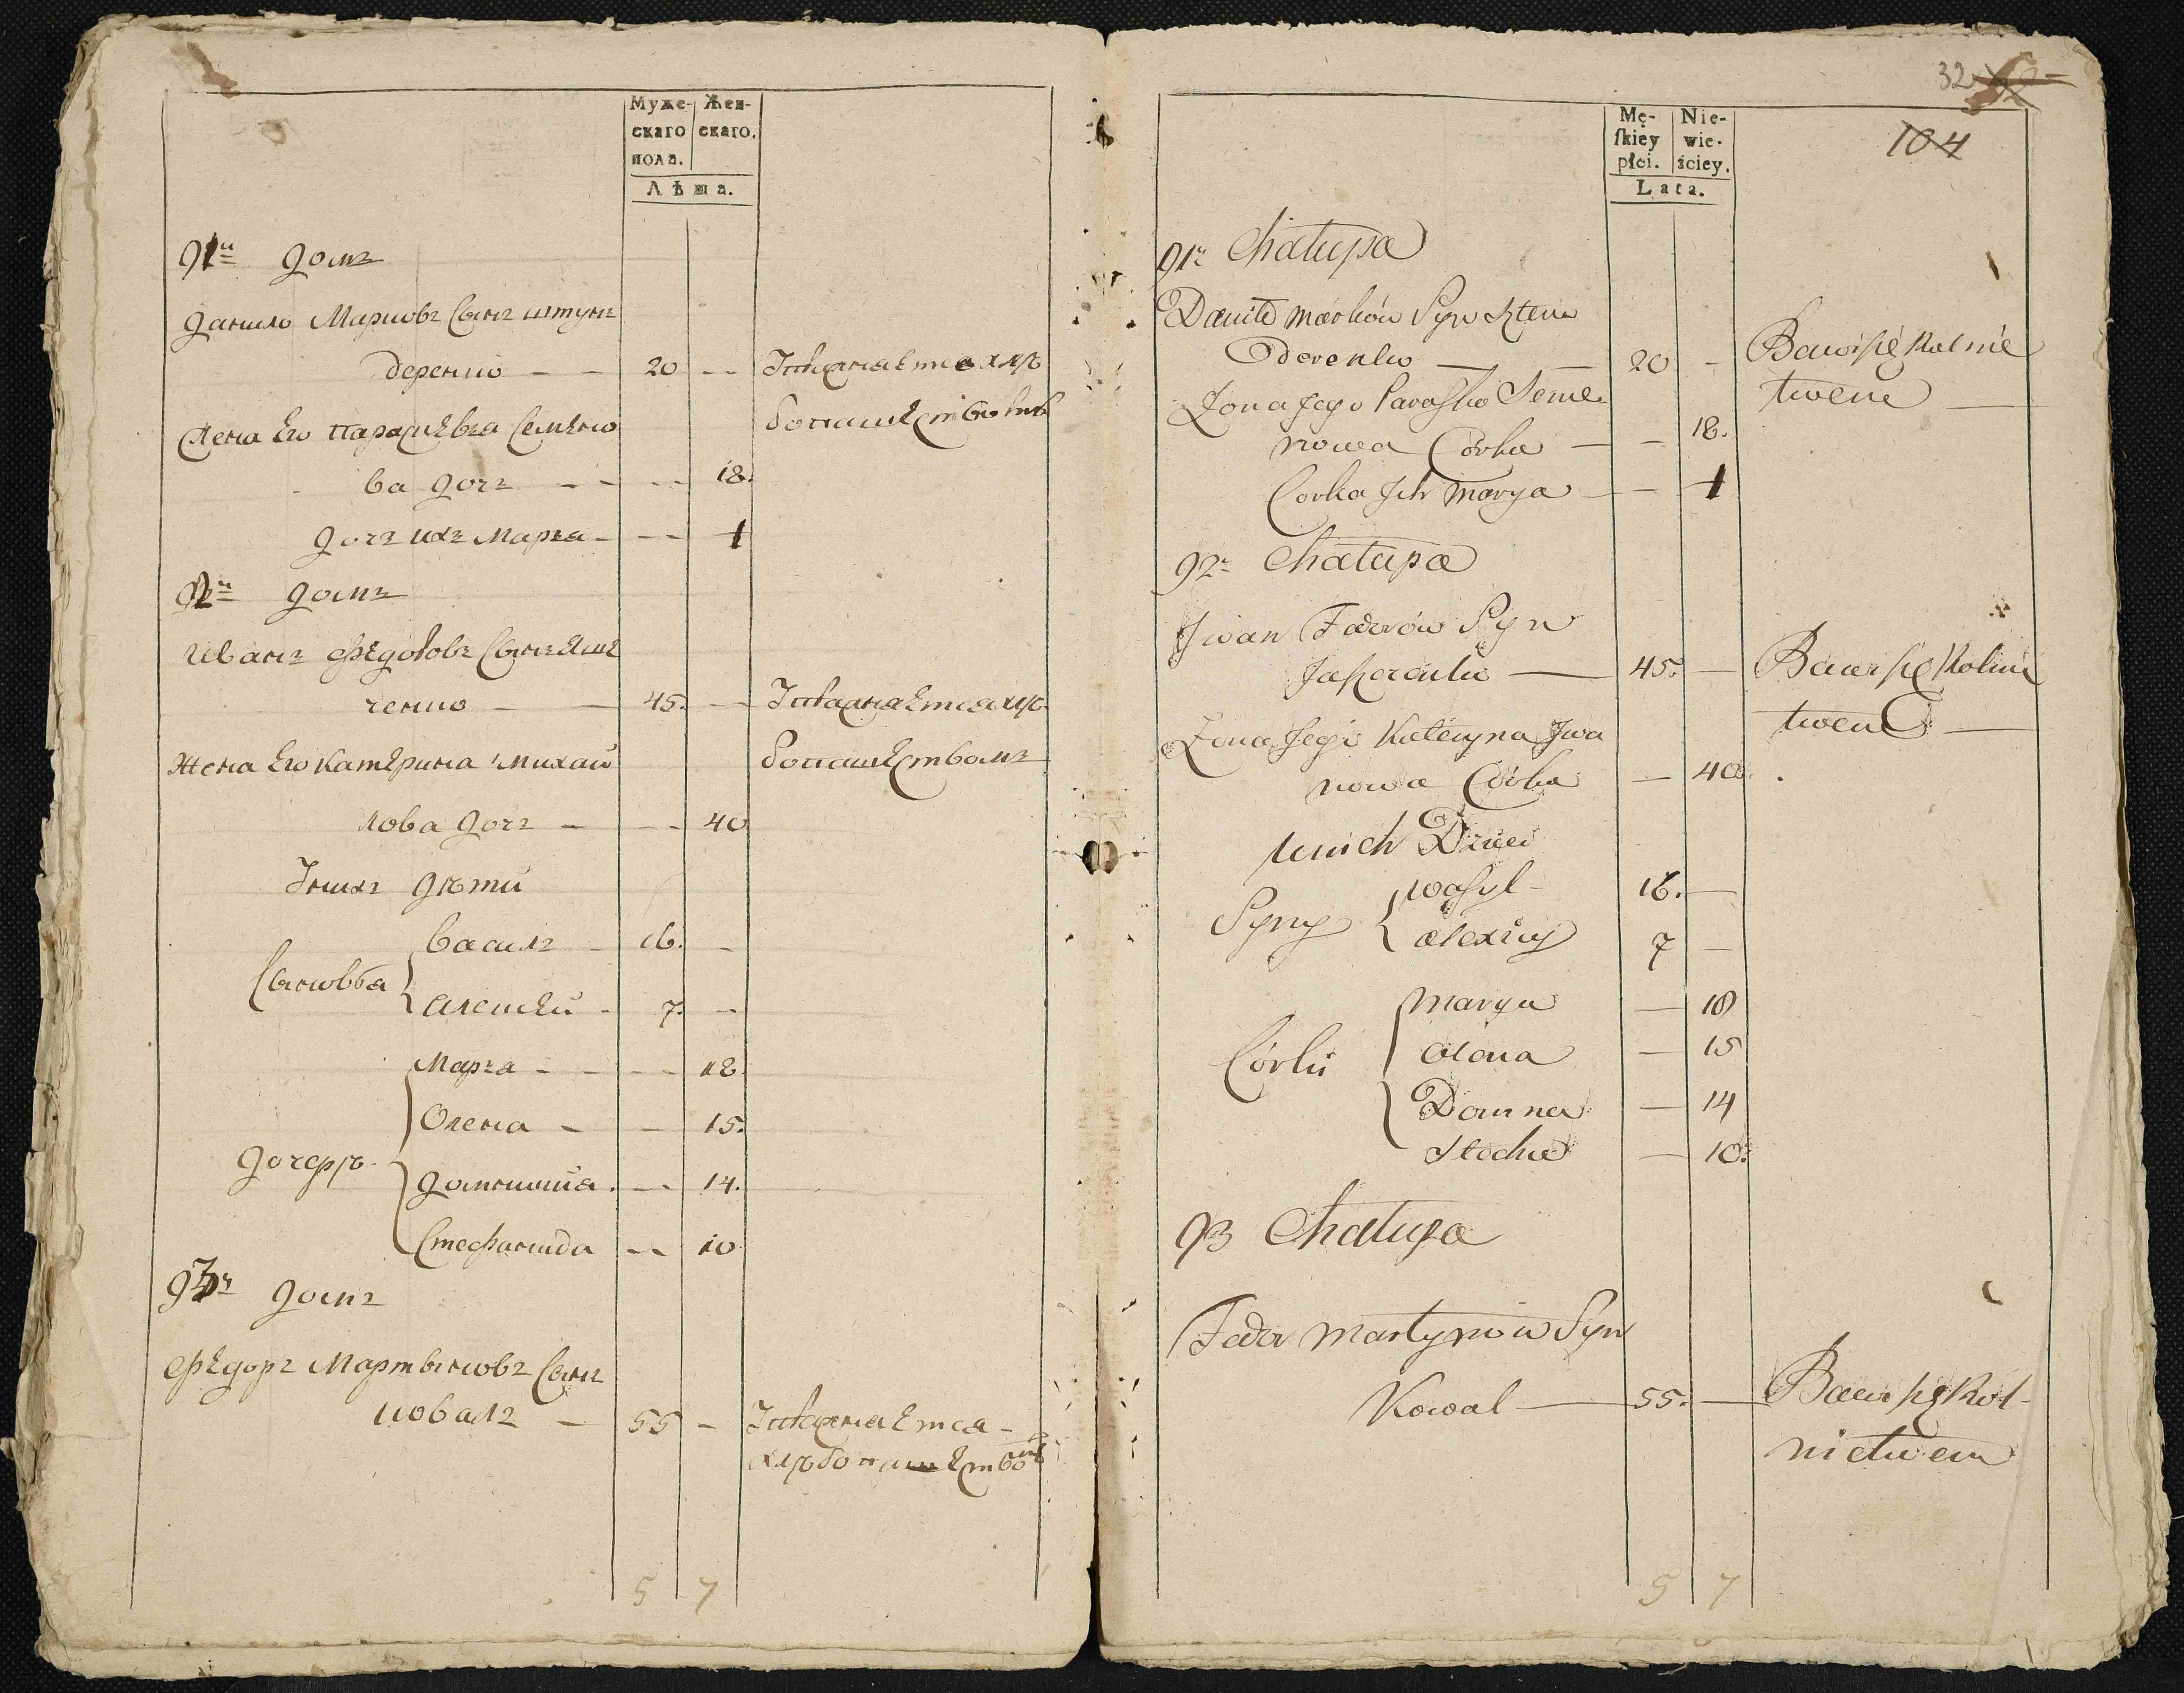 Муже-
скаго
пола.
Жен-
скаго.
Лѣта.
91й домъ
Данило Марковъ Сынъ штун
деренко — — 20 --
Жена Его Параскевҍа Семено
ва дочъ - - -- 18.
Дочъ ихъ Маръя - -- 1
92й домъ
Иванъ Федоровъ Сынъ Яще
ченко — 45. --
Жена Его Катерина Михай
лова дочъ — -- 40
Унихъ дѣти
Сыновья
Василъ - 16. -
Алексей - 7. --
Дочерѣ
Маръя - - -- 18.
Олена - - 15.
Домникия. -- 14.
Стефанида -- 10
93й домъ
Федоръ Мартыновъ Сынъ
Коваль — 55 -
5 7
32
104
Mę-
ſkiey
płci.
Nie-
wie-
ściey.
Lata.
91: Chałupa
Daniło Marków Syn Szten
derenko — 20 -
Bawi się Rolnic
twem —
Żona Jego Paraszka Seme
nowa Córka — - 18.
Corka Ich Marya — 1
92: Chałupa
Iwan Fedorów Syn
Jaszczenko — 45. —
Bawi się Rolnic
twem —
Żona Jego Kateryna Iwa
nowa Córka — 40.
u nich Dzieci
Syny
Wasyl - 16. —
Alexiey 7 —
Córki
Marya — 18
Olona — 15
Domna — 14
Stecha — 10.
93 Chałupa
Fedor Martynów Syn
Kowal — 55. —
Bawi się Rol-
nictwem
5 7